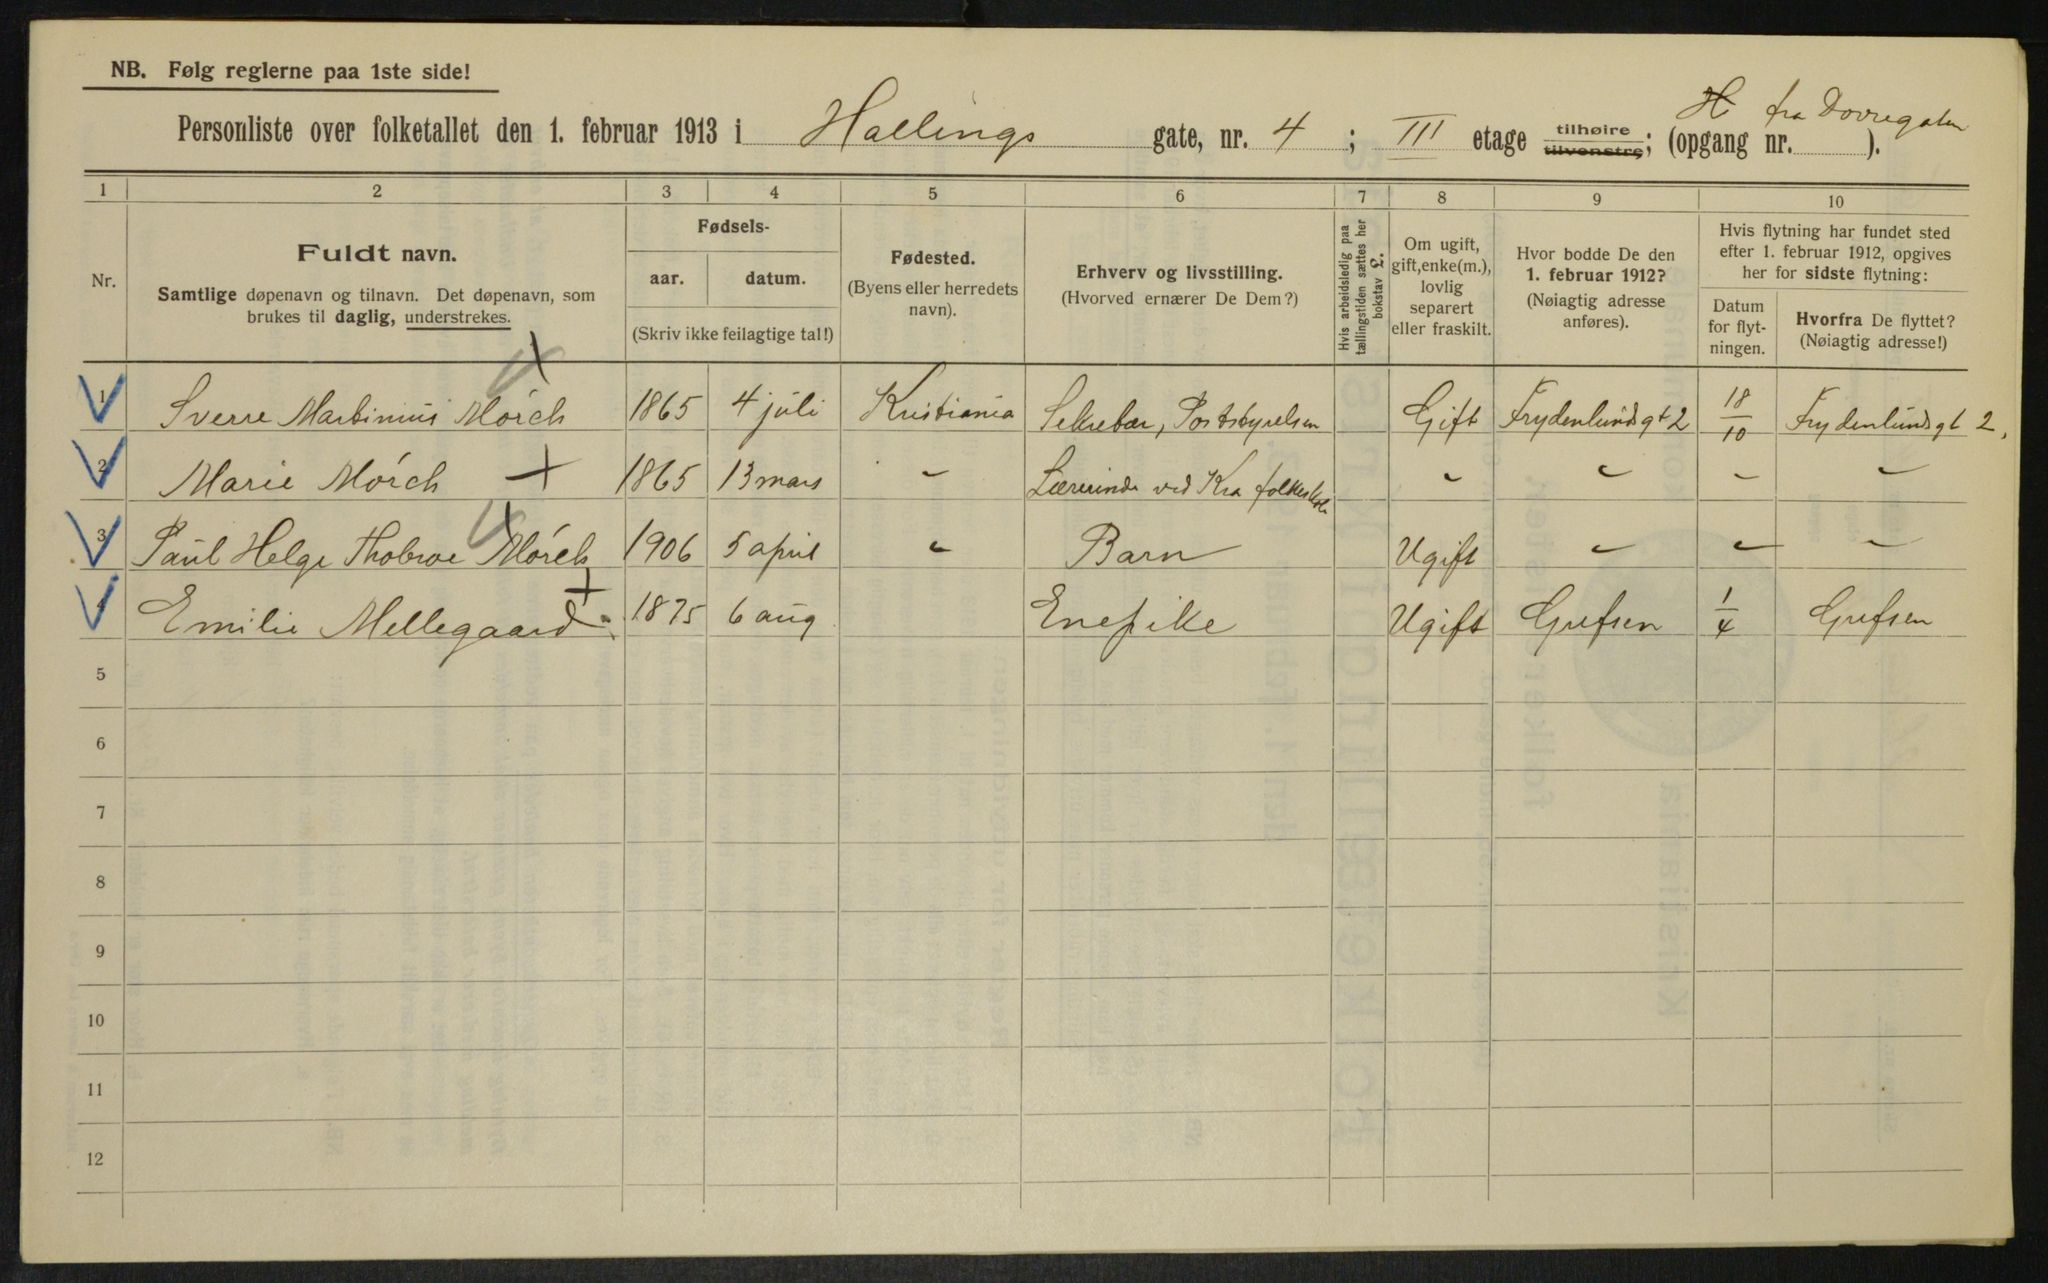 NB. Følg reglerne paa 1ste side!
H fra Dovregaten
Personliste over folketallet den 1. februar 1913 i Hallings gate, nr. 4; III etage tilhøire tilvenstre; (opgang nr. ).
1 2 3 4 5 6 7 8 9 10
Nr.
Fuldt navn.
Samtlige døpenavn og tilnavn. Det døpenavn, som
brukes til daglig, understrekes.
Fødsels-
aar. datum.
(Skriv ikke feilagtige tal!)
Fødested.
(Byens eller herredets
navn).
Erhverv og livsstilling.
(Hvorved ernærer De Dem?)
Hvis arbeidsledig paa
tællingstiden sættes her
bokstav L.
Om ugift,
gift, enke(m.),
lovlig
separert
eller fraskilt.
Hvor bodde De den
1. februar 1912?
(Nøiagtig adresse
anføres).
Hvis flytning har fundet sted
efter 1. februar 1912, opgives
her for sidste flytning:
Datum
for flyt-
ningen.
Hvorfra De flyttet?
(Nøiagtig adresse!)
1 Sverre Martinius Mórch 1865 4 juli Kristiania Sekretær, Poststyrelsen Gift Frydenlundsgt 2 18/10 Frydenlundsgt 2,
2 Marie Mórch 1865 13 mars " Lærerinde ved Kra folkeskole " " " "
3 Paul Helge Mórch 1906 5 april " Barn Ugift " " "
4 Emilie Mellegaard 1875 6 aug Enepike Ugift Grefsen 1/4 Grefsen
5
6
7
8
9
10
11
12